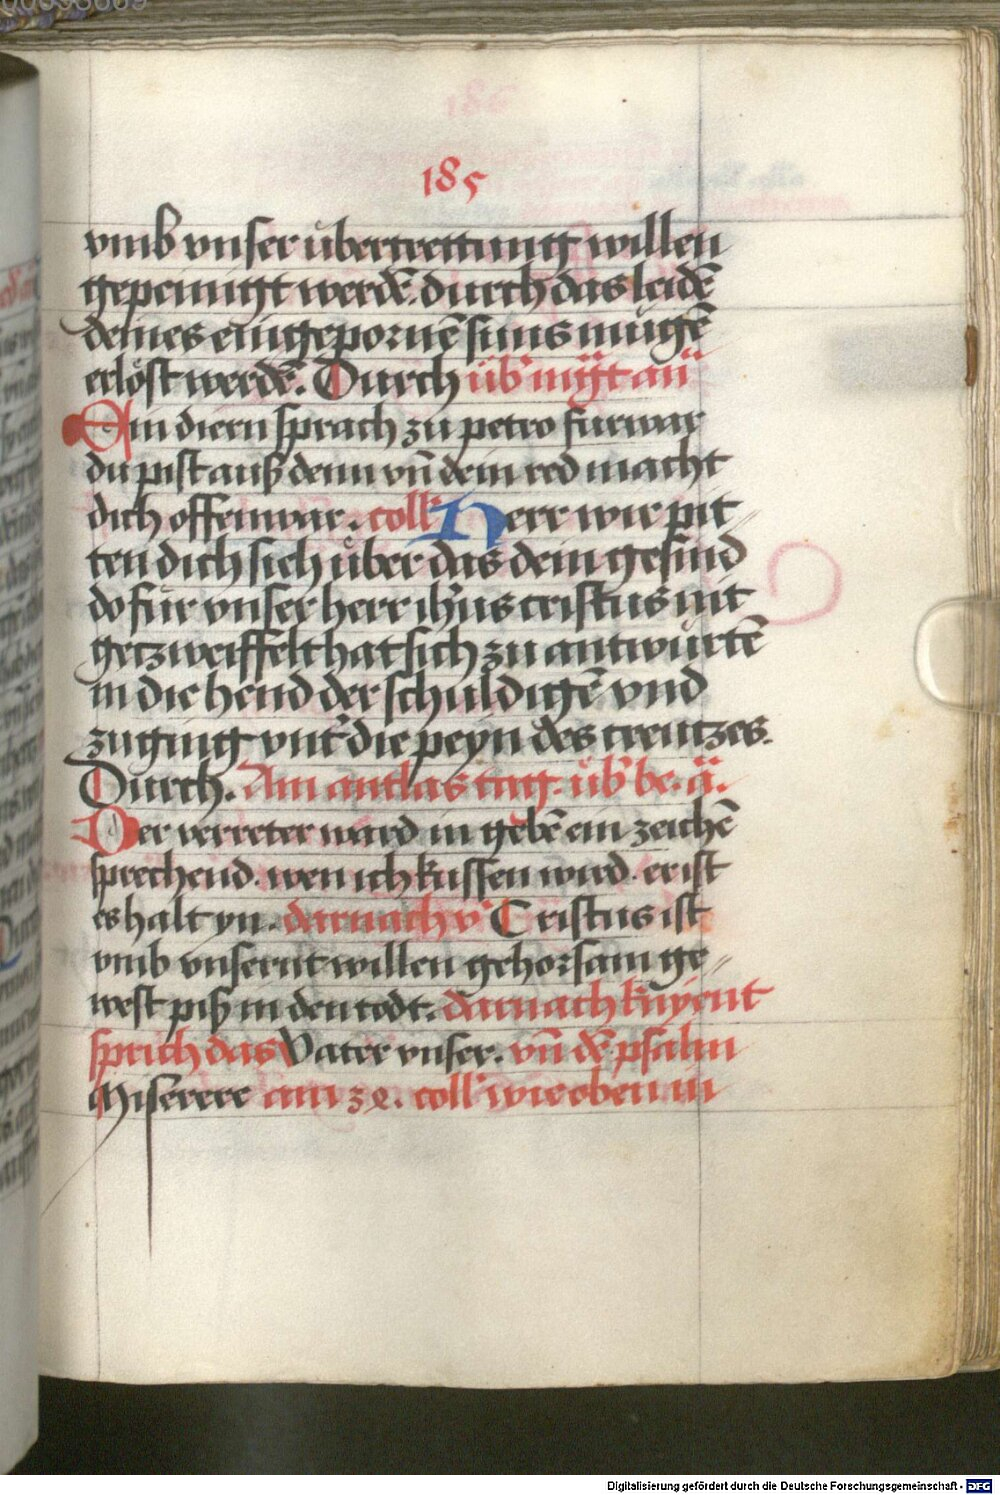 185
vmb vnser übertrettung willen
gepeinigt werdē. durch das leidē
deines eingepornē suns mügē
erlöst werdē. Durch üb' m̄gt an̄
Ain diern sprach zu petro fürwar
du pist auß denn vn̄ dein red macht
dich offenwar. coll' Herr wir pit
ten dich sich über das dein gesind
do für vnser herr ih'us cristus nit
getzweiffelt hat sich zu antwürtē
in die hend der schuldigē vnd
zuging vnt' die peyn des creutzes.
Durch. Am antlas tag. üb' be. ā.
Der verreter ward in gebē ein zeichē
sprechend. wen ich küssen wird. er ist
es halt yn. darnach v' Cristus ist
vmb vnsernt willen gehorsam ge⸗
west piß in den todt. darnach knyent
sprich das Vater vnser. vn̄ dē psalm
Miserere am 32. coll' wie oben in
Digitalisierung gefördert durch die Deutsche Forschungsgemeinschaft - DFG